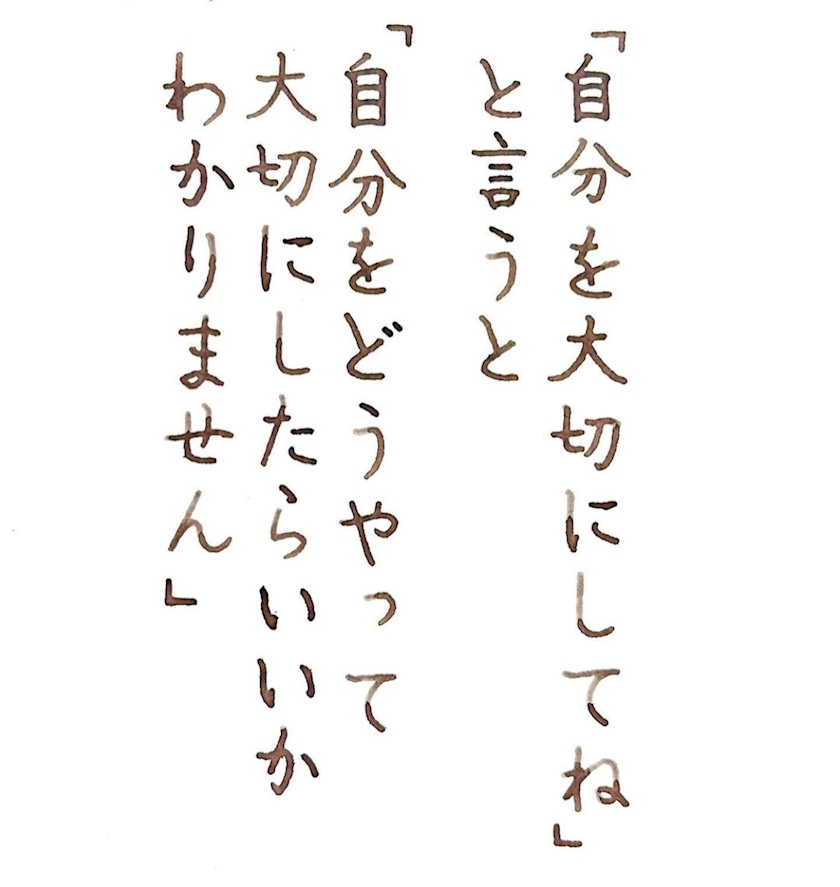 「自分を大切にしてね」
と言うと
「自分をどうやって
大切にしたらいいか
わかりません」